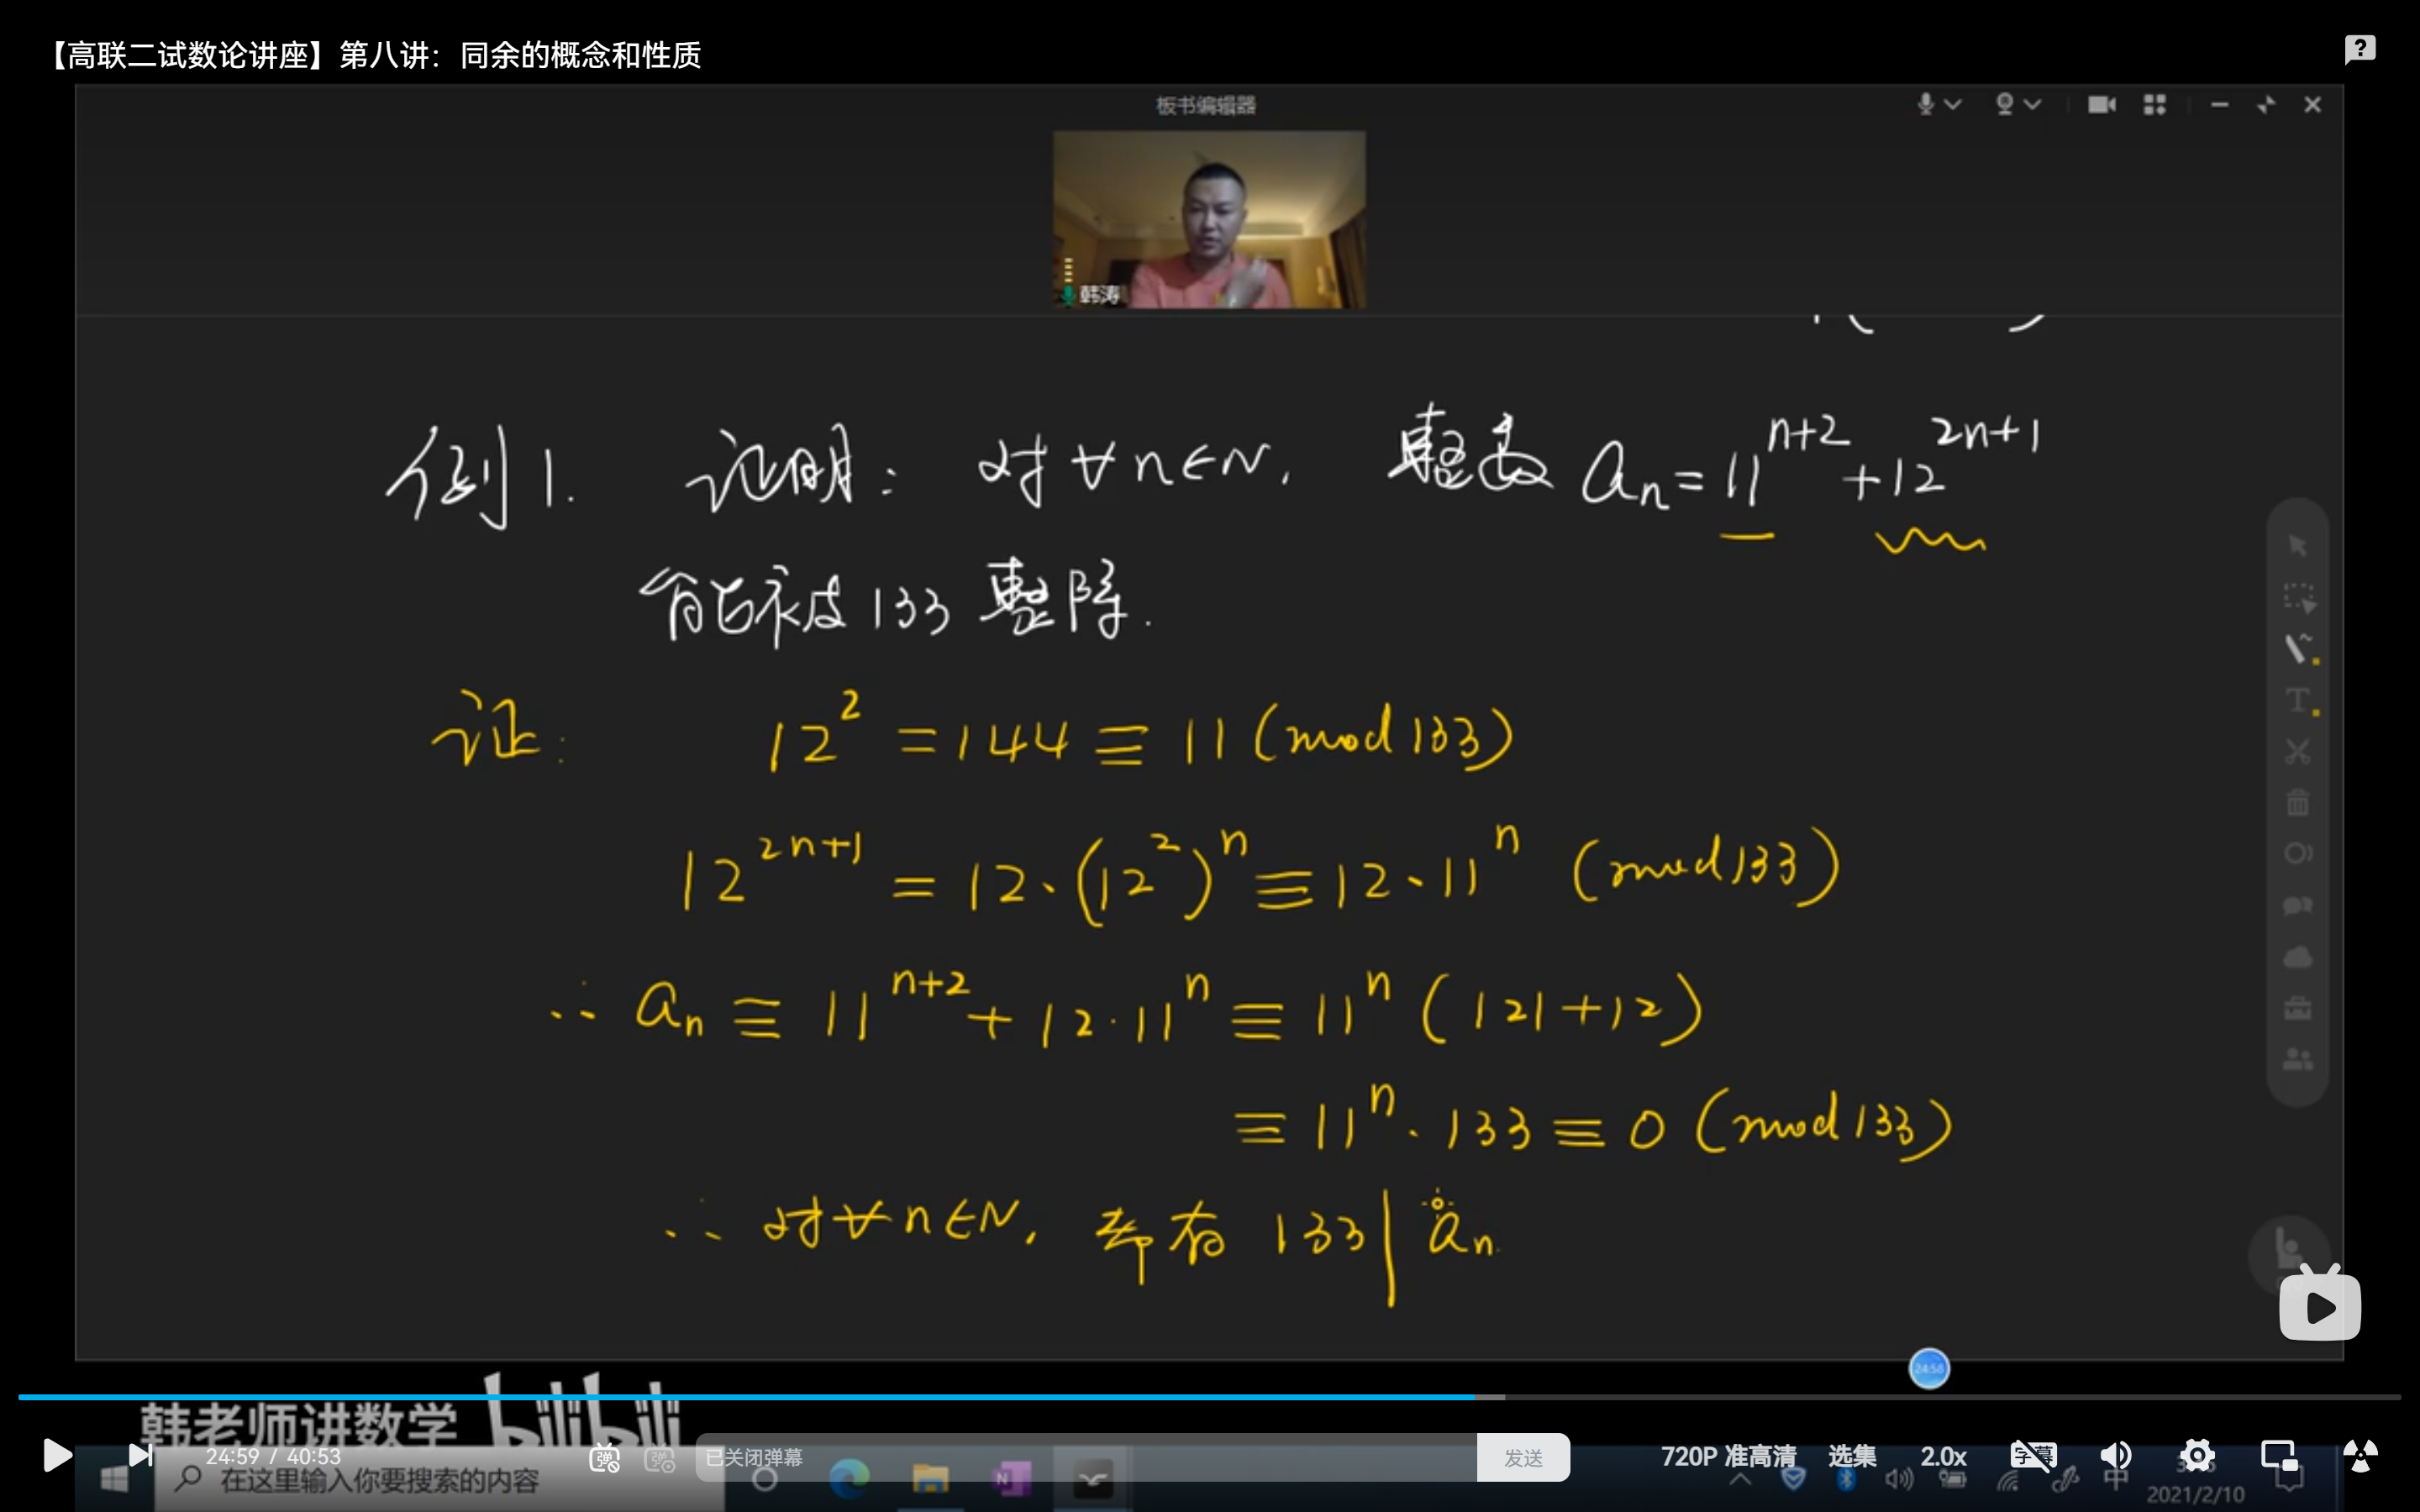 【高联二试数论讲座】第八讲：同余的概念和性质
板书编辑器
韩涛
例1. 证明：对∀n∈N, 整数 aₙ=11^{n+2}+12^{2n+1}
能被133整除.
证: 12² =144≡11 (mod 133)
12^{2n+1} = 12·(12²)^n ≡12·11^n (mod 133)
∴ aₙ ≡ 11^{n+2}+12·11^n ≡ 11^n (121+12)
≡ 11^n·133≡0 (mod 133)
∴ 对∀n∈N, 都有 133|aₙ.
24:58
韩老师讲数学 bilibili
24:59 / 40:53
已关闭弹幕
发送
720P 准高清
选集
2.0x
在这里输入你要搜索的内容
中
2021/2/10